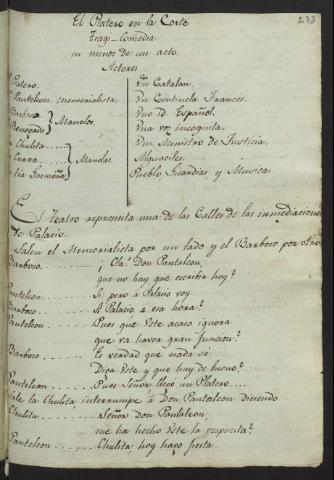 273
El Platero en la Corte
Tragi-Comedia
en menos de un acto.
Actores
Platero. Un Catalan.
Pantaleon memorialista. Un Centinela Frances.
Barboso Manolos. Uno id. Español.
Una voz incognita.
Chulita Un Ministro de Justicia.
Curra Manolas Alguaciles
tia Pueblo, Guardias, y Musica.
El teatro representa una de las Calles de las inmediaciones
de Palacio.
Salen el Memorialista por un lado y el Barboso por otro.
Barboso. ¡Ola! Don Pantaleon,
que no hay que escribir hoy?
Panteleon. Si pero à Palacio voy.
Barboso. A Palacio a esa hora?
Panteleon. Pues que Uste acaso ignora
que va haver gran funcion?
Barboso Es verdad que nada sé
Diga Uste y que hay de bueno?
Panteleon. Pues Señor llegó un Platero....
Sale la Chulita, interrumpe à Don Pantaleon diciendo
Chulita. Señor Don Pantaleon,
me ha hecho Uste la respuesta?
Panteleon Chulita hoy hago fiesta.